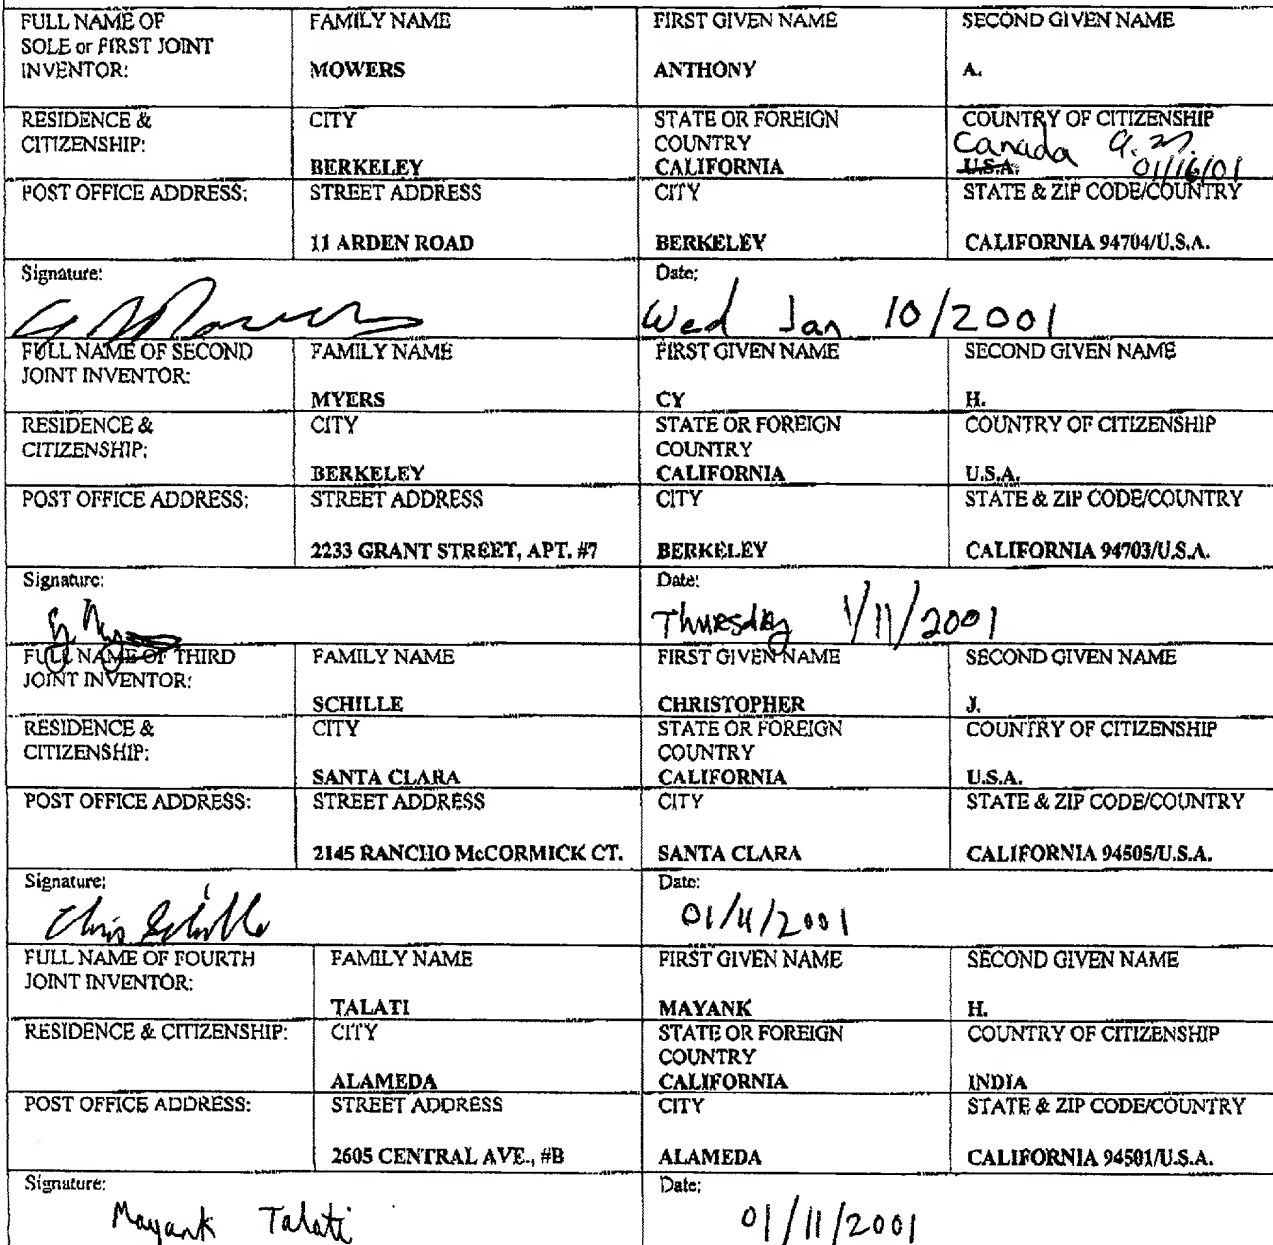 FULL NAME OF SOLE or FIRST JOINT INVENTOR:
FAMILY NAME
MOWERS
FIRST GIVEN NAME
ANTHONY
SECOND GIVEN NAME
A.
RESIDENCE & CITIZENSHIP:
CITY
BERKELEY
STATE OR FOREIGN COUNTRY
CALIFORNIA
COUNTRY OF CITIZENSHIP
Canada
U.S.A.
01/16/01
POST OFFICE ADDRESS:
STREET ADDRESS
11 ARDEN ROAD
CITY
BERKELEY
STATE & ZIP CODE/COUNTRY
CALIFORNIA 94704/U.S.A.
Signature:
Date:
Wed Jan 10/2001
FULL NAME OF SECOND JOINT INVENTOR:
FAMILY NAME
MYERS
FIRST GIVEN NAME
CY
SECOND GIVEN NAME
H.
RESIDENCE & CITIZENSHIP:
CITY
BERKELEY
STATE OR FOREIGN COUNTRY
CALIFORNIA
COUNTRY OF CITIZENSHIP
U.S.A.
POST OFFICE ADDRESS:
STREET ADDRESS
2233 GRANT STREET, APT. #7
CITY
BERKELEY
STATE & ZIP CODE/COUNTRY
CALIFORNIA 94703/U.S.A.
Signature:
Date:
Thursday 1/11/2001
FULL NAME OF THIRD JOINT INVENTOR:
FAMILY NAME
SCHILLE
FIRST GIVEN NAME
CHRISTOPHER
SECOND GIVEN NAME
J.
RESIDENCE & CITIZENSHIP:
CITY
SANTA CLARA
STATE OR FOREIGN COUNTRY
CALIFORNIA
COUNTRY OF CITIZENSHIP
U.S.A.
POST OFFICE ADDRESS:
STREET ADDRESS
2145 RANCHO McCORMICK CT.
CITY
SANTA CLARA
STATE & ZIP CODE/COUNTRY
CALIFORNIA 94505/U.S.A.
Signature:
Chris Schille
Date:
01/11/2001
FULL NAME OF FOURTH JOINT INVENTOR:
FAMILY NAME
TALATI
FIRST GIVEN NAME
MAYANK
SECOND GIVEN NAME
H.
RESIDENCE & CITIZENSHIP:
CITY
ALAMEDA
STATE OR FOREIGN COUNTRY
CALIFORNIA
COUNTRY OF CITIZENSHIP
INDIA
POST OFFICE ADDRESS:
STREET ADDRESS
2605 CENTRAL AVE., #B
CITY
ALAMEDA
STATE & ZIP CODE/COUNTRY
CALIFORNIA 94501/U.S.A.
Signature:
Mayank Talati
Date:
01/11/2001